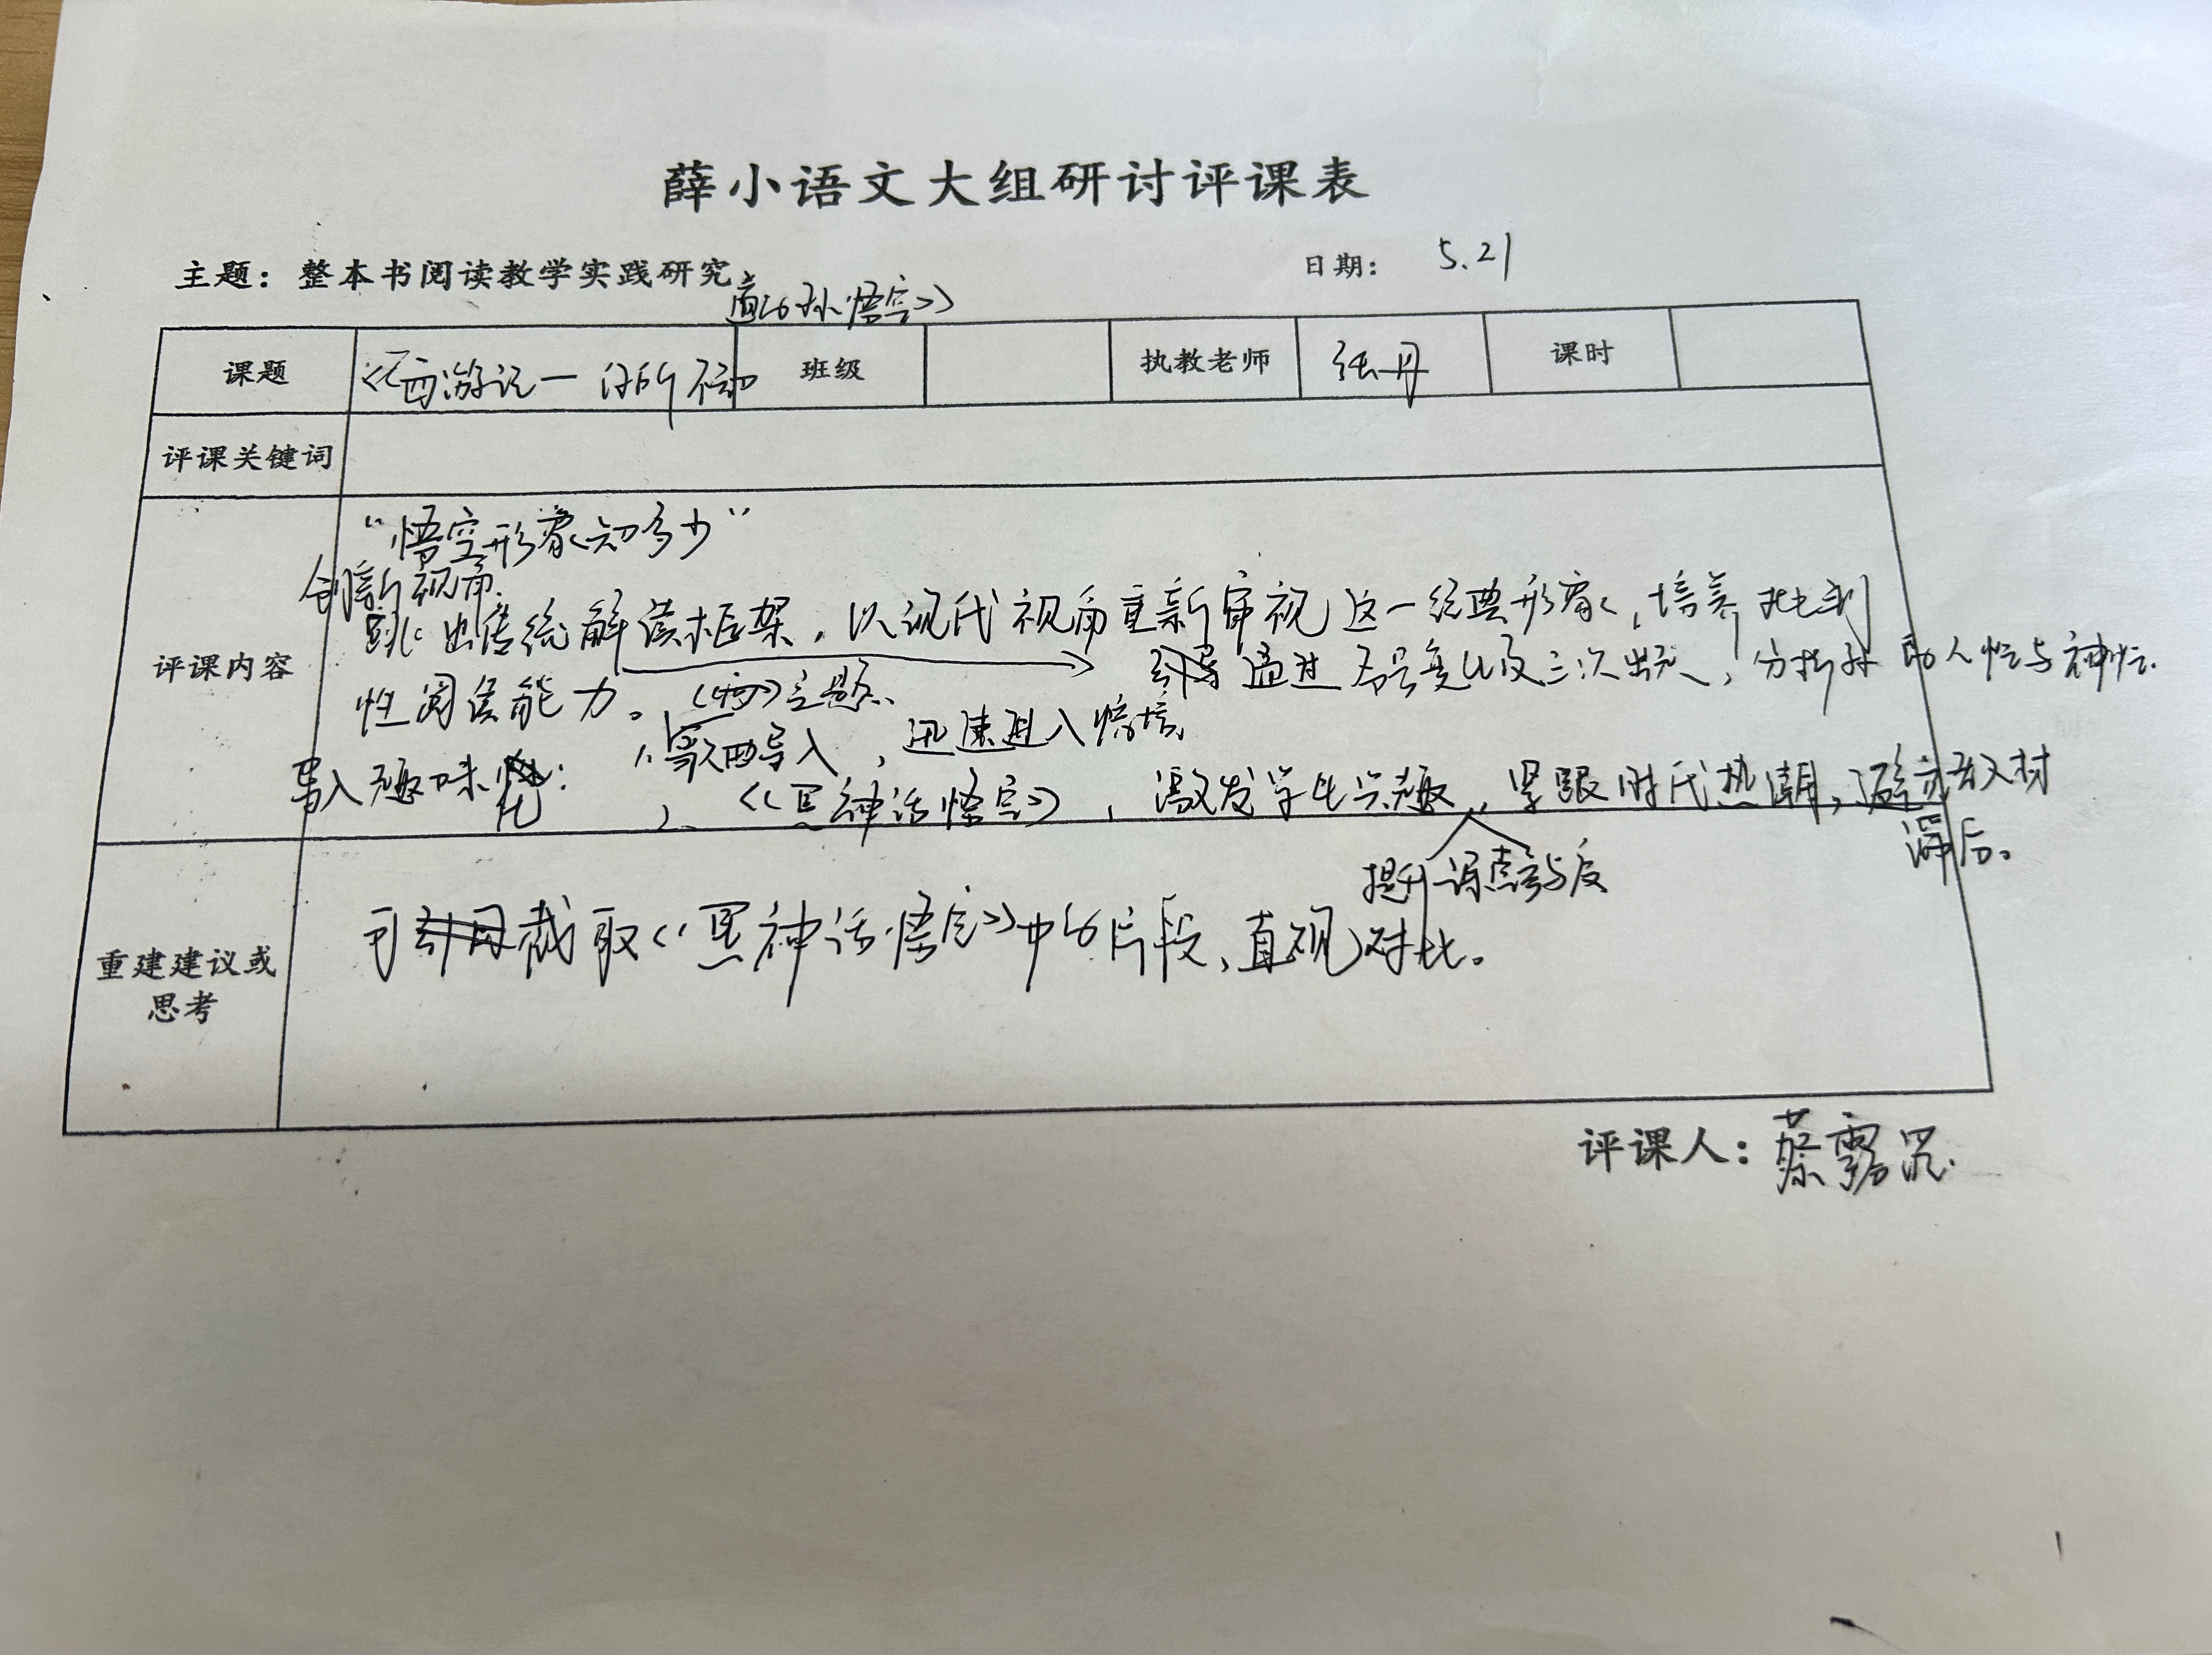 薛小语文大组研讨评课表
主题：整本书阅读教学实践研究
日期： 5.21
道的孙悟空》
课题
《西游记—你所不知
班级
执教老师
张丹
课时
评课关键词
“悟空形象知多少”
创新视角.
跳出传统解读框架，以现代视角重新审视这一经典形象，培养批判
评课内容
引导通过名号变化及三次出走，分析孙的人性与神性.
性阅读能力。
主题
1、歌曲导入，迅速进入情境
导入趣味化：
2、《黑神话悟空》，激发学生兴趣，紧跟时代热潮，避免教材
滞后。
提升课堂参与度
可截取《黑神话悟空》中的片段，直观对比。
重建建议或
思考
评课人：蔡露